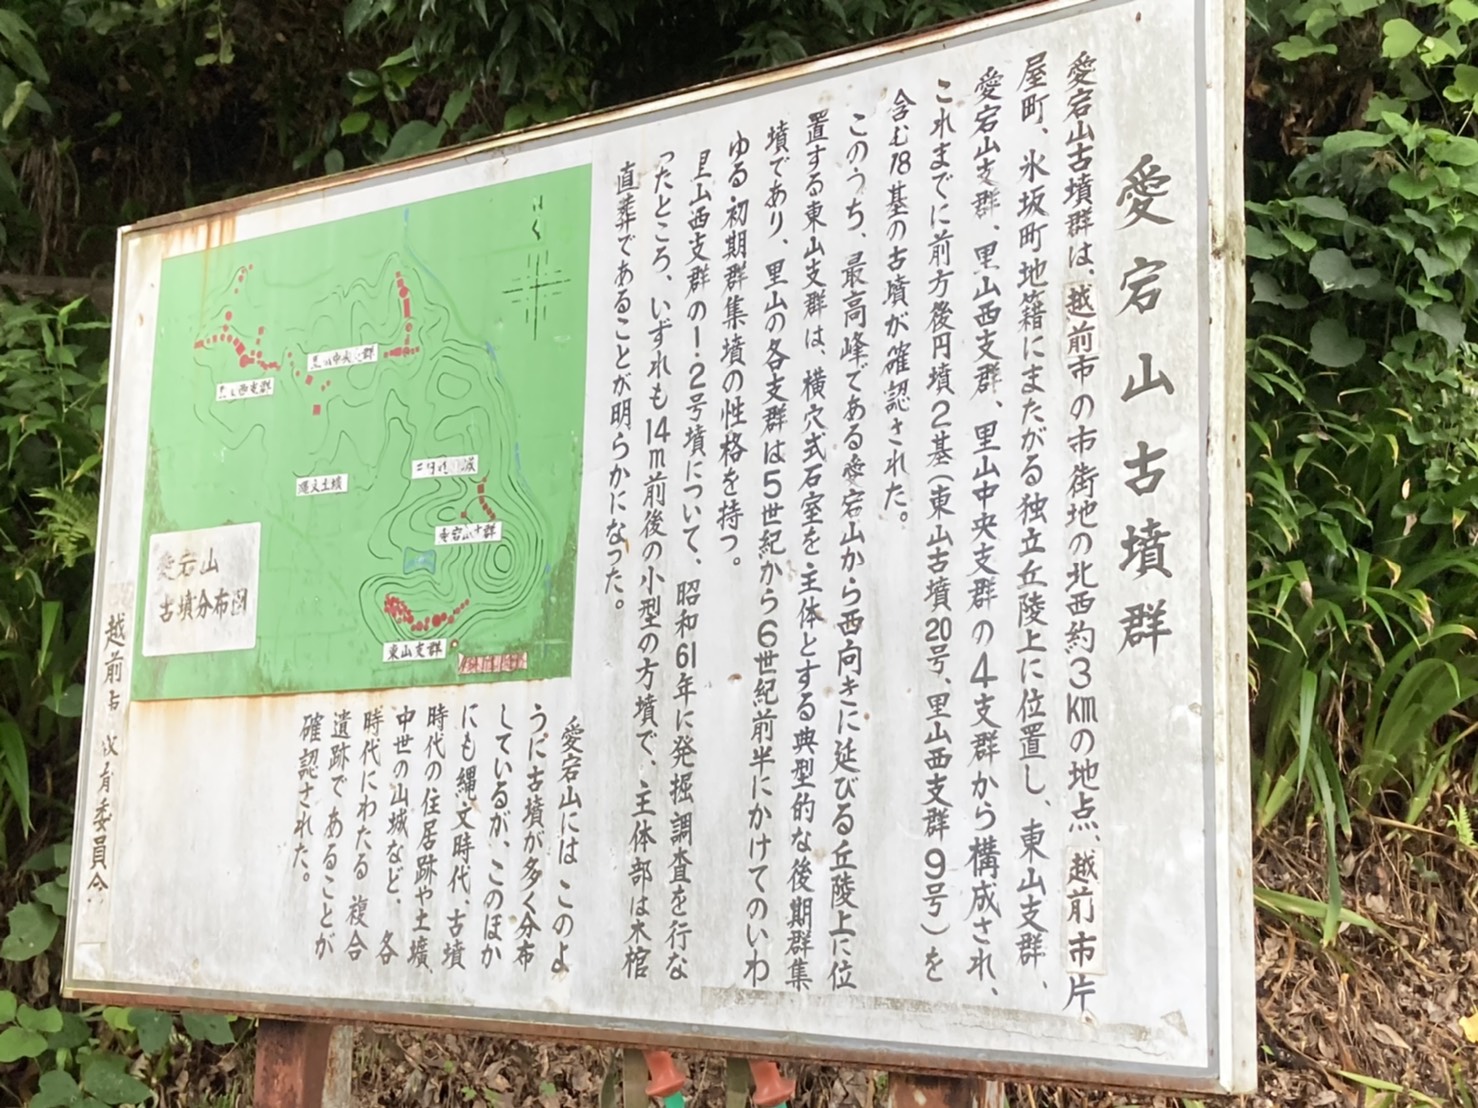 愛宕山古墳群
愛宕山古墳群は、越前市の市街地の北西約3kmの地点、越前市片
屋町、氷坂町地籍にまたがる独立丘陵上に位置し、東山支群、
愛宕山支群、里山西支群、里山中央支群の4支群から構成され、
これまでに前方後円墳2基(東山古墳20号、里山西支群9号)を
含む78基の古墳が確認された。
このうち、最高峰である愛宕山から西向きに延びる丘陵上に位
置する東山支群は、横穴式石室を主体とする典型的な後期群集
墳であり、里山の各支群は5世紀から6世紀前半にかけてのいわ
ゆる初期群集墳の性格を持つ。
里山西支群の1・2号墳について、昭和61年に発掘調査を行な
ったところ、いずれも14m前後の小型の方墳で、主体部は木棺
直葬であることが明らかになった。
愛宕山にはこのよ
うに古墳が多く分布
しているが、このほか
にも縄文時代、古墳
時代の住居跡や土壙、
中世の山城など、各
時代にわたる複合
遺跡であることが
確認された。
里山中央支群
縄文土壙
愛宕山支群
東山支群
愛宕山
古墳分布図
越前市教育委員会